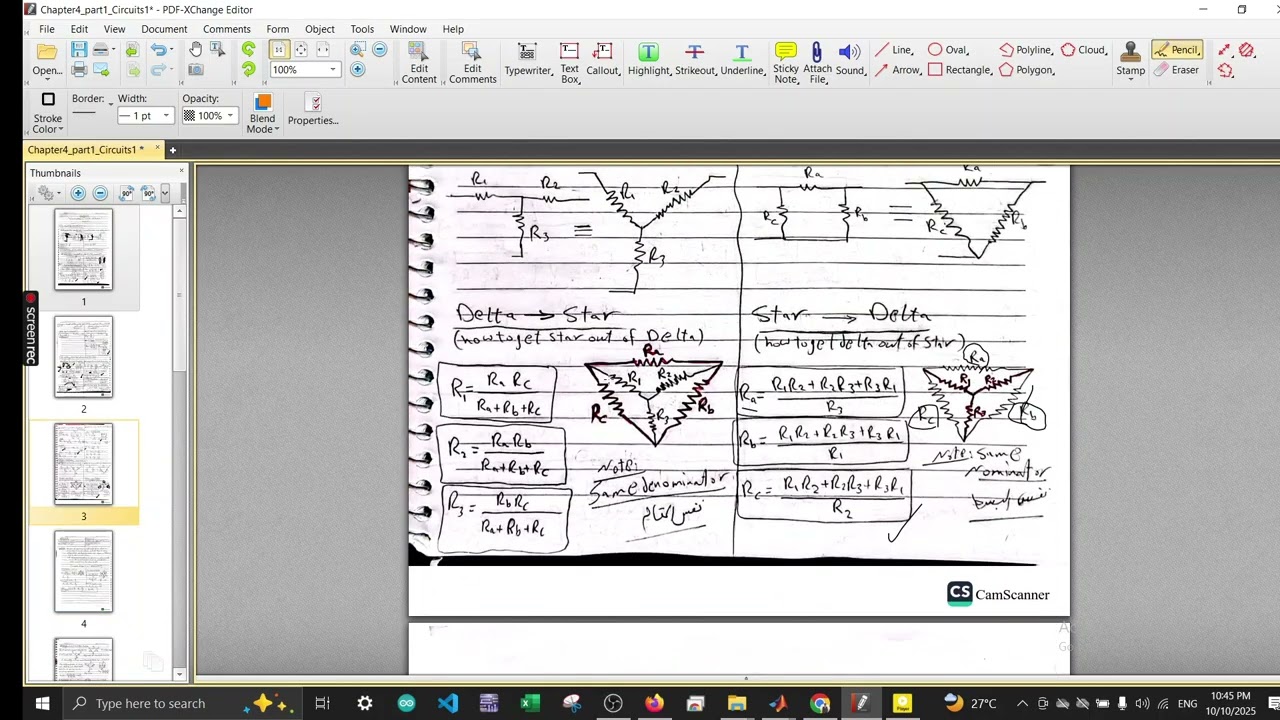 Chapter4_part1_Circuits1* - PDF-XChange Editor
File Edit View Document Comments Form Object Tools Window Help
Open...
100%
Edit Content
Edit Comments
Typewriter
Text Box
Callout
Highlight
Strikeout
Underline
Sticky Note
Attach File
Sound
Line
Arrow
Oval
Rectangle
Polyline
Polygon
Cloud
Stamp
Pencil
Eraser
Stroke Color
Border:
Width:
1 pt
Opacity:
100%
Blend Mode
Properties...
Chapter4_part1_Circuits1 *
Thumbnails
1
2
3
4
screentec
R1 R2 R3 ≡ R1 R2 R3
Ra Rc Rb ≡ Ra Rc Rb
Delta → Star
(how to get star out of Delta)
R1 = Ra Rc / Ra+Rb+Rc
R2 = Ra Rb / Ra+Rb+Rc
R3 = Rb Rc / Ra+Rb+Rc
Ra R1 R2 Rc R3 Rb
Note:
Same denominator
نفس المقام
Star → Delta
(how to get delta out of star)
Ra = R1R2 + R2R3 + R3R1 / R3
Rb = R1R2 + R2R3 + R3R1 / R1
Rc = R1R2 + R2R3 + R3R1 / R2
Ra R1 R2 Rc R3 Rb
Note: Same
Nominator
نفس البسط
CS CamScanner
Type here to search
27°C
ENG
10:45 PM
10/10/2025